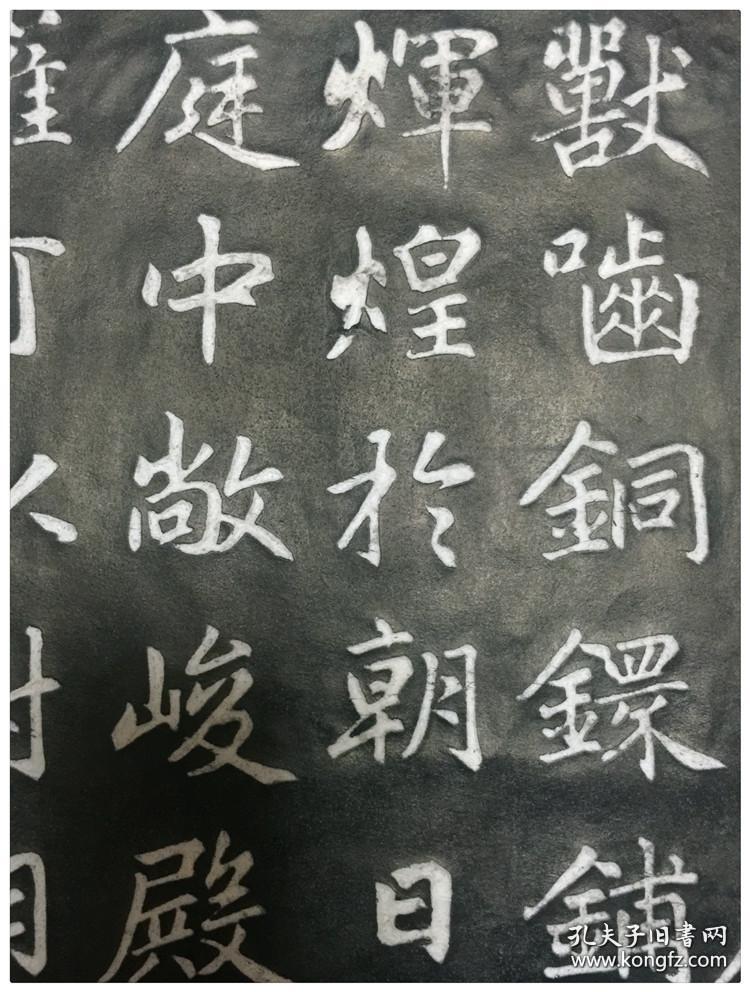 獸噛銅鐶鋪
煇煌於朝日
庭中敞峻殿
孔夫子旧書网
www.kongfz.com